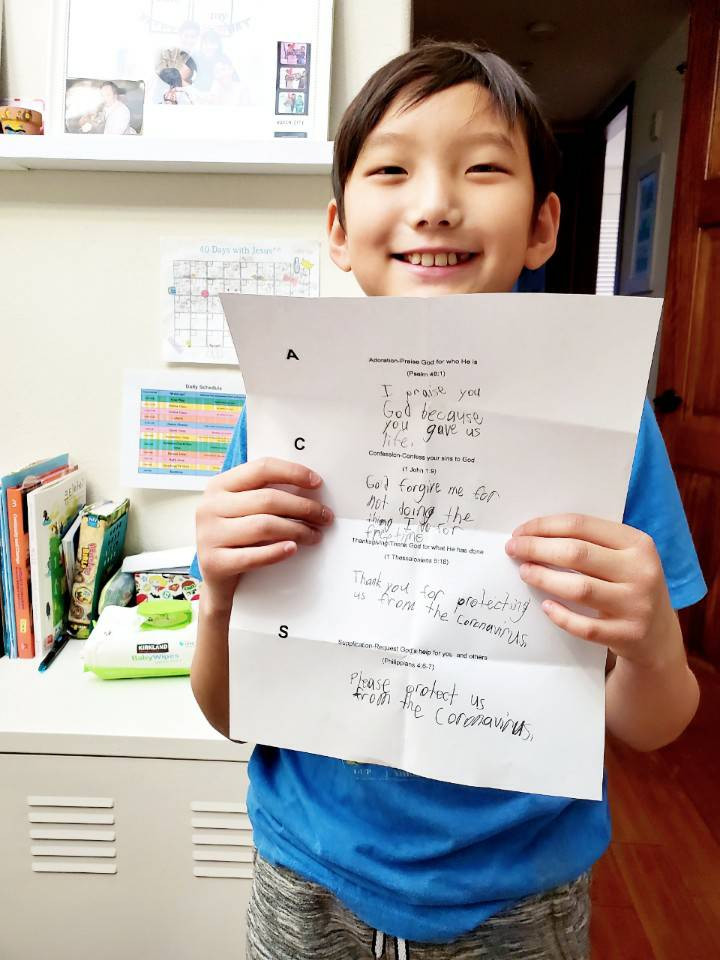 my
40 Days with Jesus
Daily Schedule
A
Adoration-Praise God for who He is
(Psalm 48:1)
I praise you
God because
you gave us
life.
C
Confession-Confess your sins to God
(1 John 1:9)
God forgive me for
not doing the
thing I do for
freetime
Thanksgiving-Thank God for what He has done
(1 Thessalonians 5:18)
Thank you for protecting
us from the Coronavirus.
S
Supplication-Request God's help for you and others
(Philippians 4:6-7)
Please protect us
from the Coronavirus.
KIRKLAND
Baby Wipes